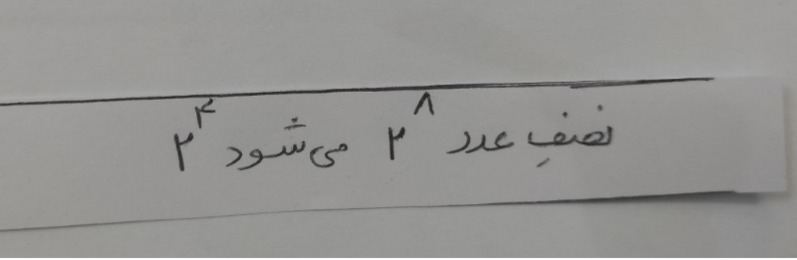 نصفِ عدد ۲^۸ می‌شود ۲^۴